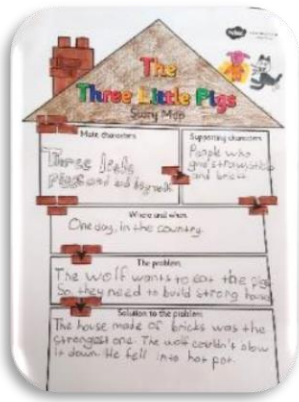 The
Three Little Pigs
Story Map
Main characters
Supporting characters
Three little
pigs and
People who
and bricks
Where and when
One day, in the country.
The problem
The wolf wants to eat the pigs
So, they need to build strong house
Solution to the problem
The house made of bricks was the
strongest one. The wolf couldn't blow
it down. He fell into hot pot.